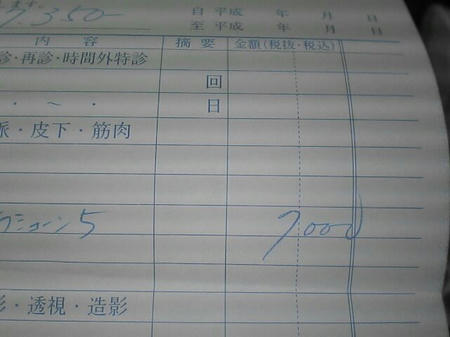 ます。
7,350-
自 平成 年 月 日
至 平成 年 月 日
内容 摘要 金額(税抜・税込)
診・再診・時間外特診
回
・ ～ ・ 日
脈・皮下・筋肉
クション5 7000
影・透視・造影